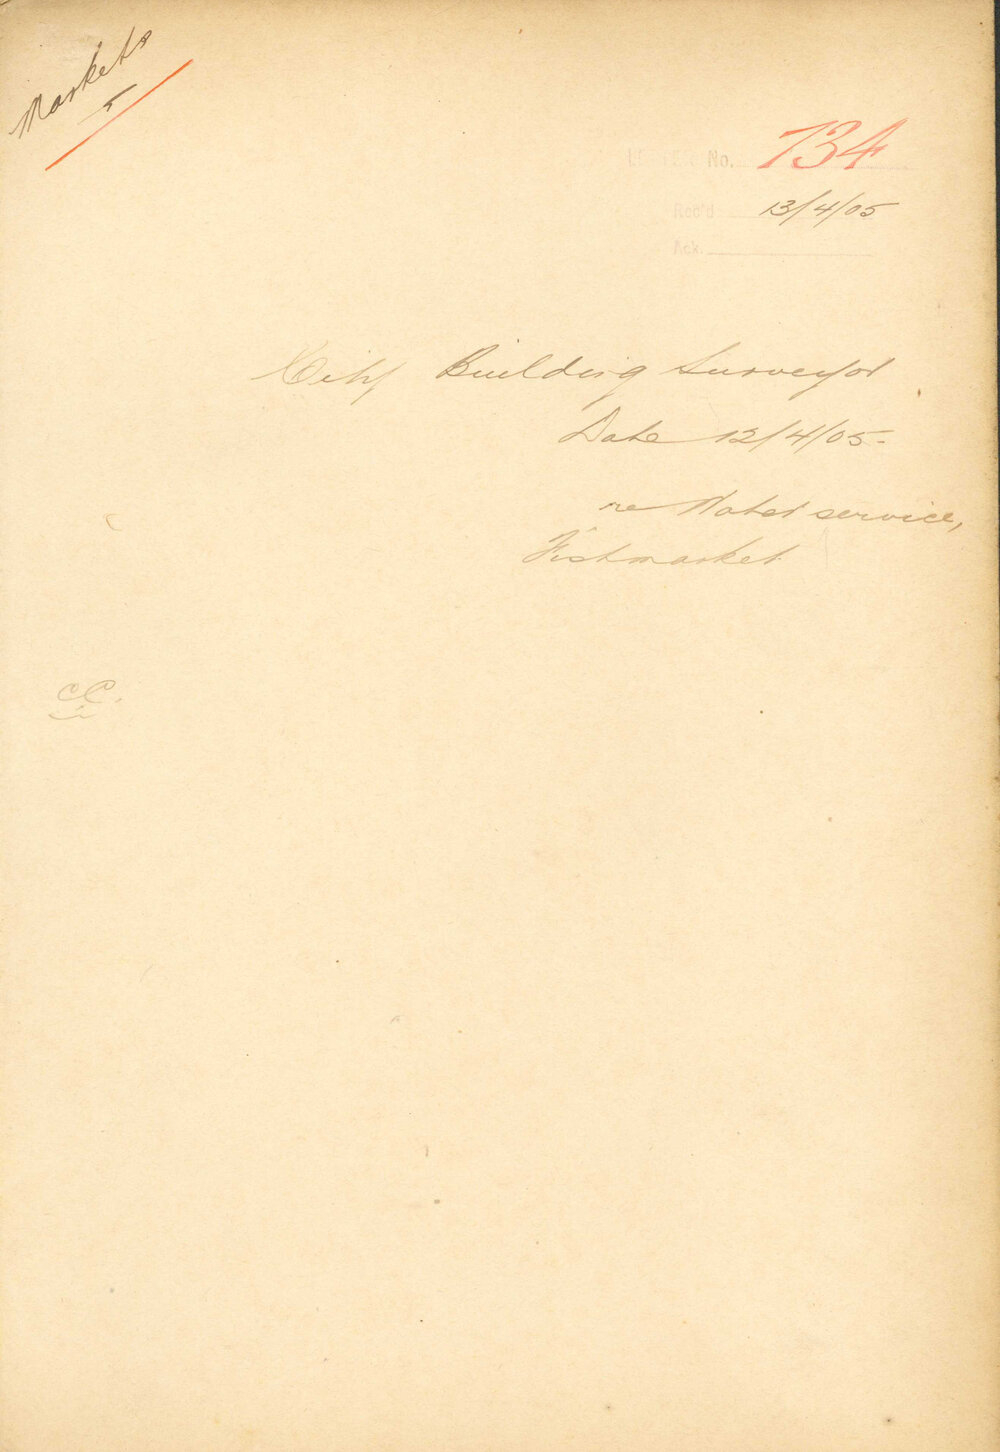 Markets
5
LETTER No. 734
Rec'd 13/4/05
Ack.
City Building Surveyor
Date 12/4/05-
re Water service,
Fishmarket
CC.